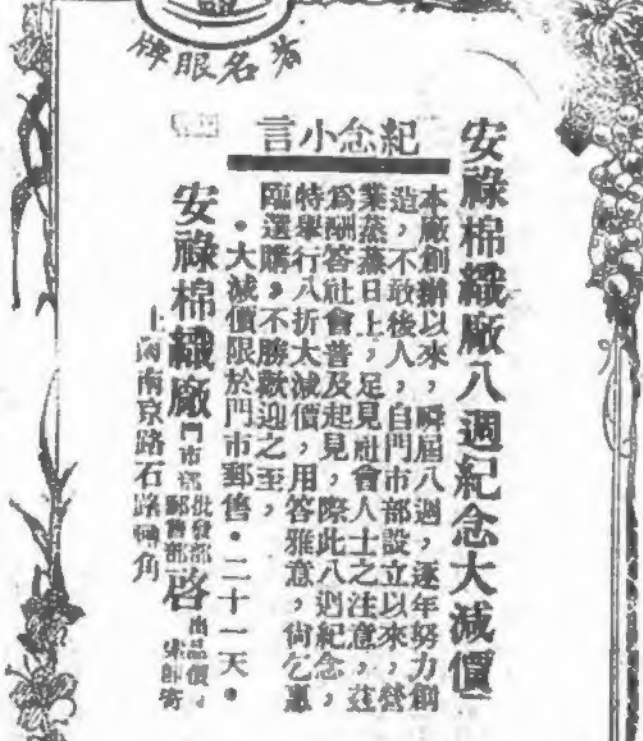 名眼牌
安祿棉織廠八週紀念大減價
紀念小言
本廠創辦以來，瞬屆八週，逐年努力創
造，不敢後人，自門市部設立以來，營
業蒸蒸日上，足見社會人士之注意，茲
爲酬答社會普及起見，際此八週紀念，
特舉行八折大減價，用答雅意，尙乞惠
臨選購，不勝歡迎之至，
•大減價限於門市郵售•二十一天•
安祿棉織廠門市部批發部郵售部啓
出品價
索即寄
上海南京路石路轉角